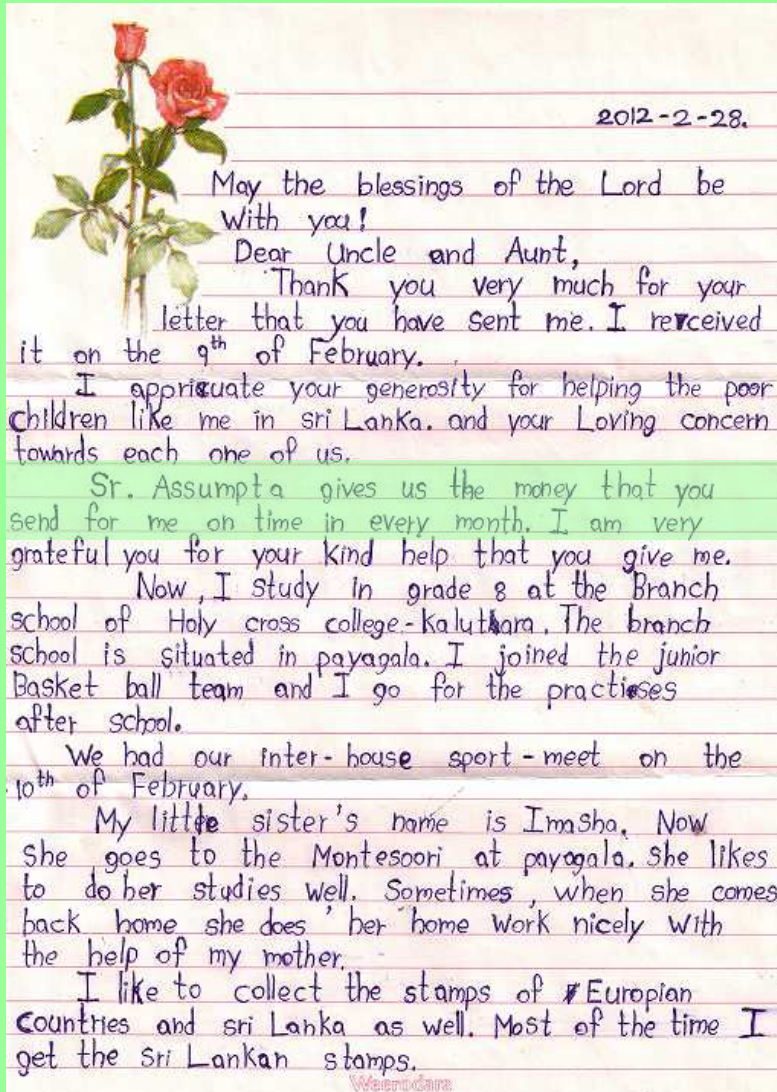 2012-2-28.
May the blessings of the Lord be
With you!
Dear Uncle and Aunt,
Thank you very much for your
letter that you have sent me. I rerceived
it on the 9th of February.
I appricuate your generosity for helping the poor
children like me in sri Lanka. and your Loving concern
towards each one of us.
Sr. Assumpta gives us the money that you
send for me on time in every month. I am very
grateful you for your kind help that you give me.
Now, I study in grade 8 at the Branch
school of Holy cross college-kaluthara. The branch
school is situated in payagala. I joined the junior
Basket ball team and I go for the practises
after school.
We had our inter-house sport-meet on the
10th of February.
My little sister's name is Imasha. Now
she goes to the Montesoori at payagala. she likes
to do her studies well. Sometimes, when she comes
back home she does her home work nicely with
the help of my mother.
I like to collect the stamps of Europian
countries and sri Lanka as well. Most of the time I
get the sri Lankan stamps.
Weerodara